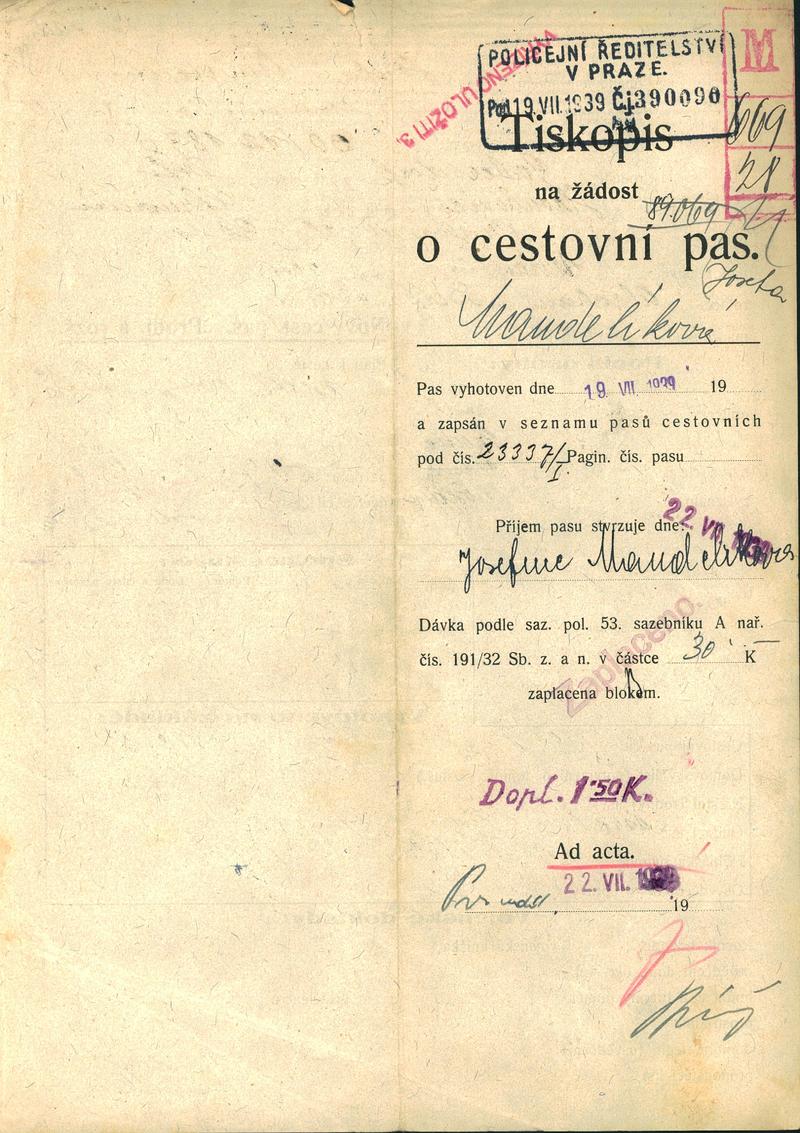 POLICEJNÍ ŘEDITELSTVÍ
V PRAZE.
19.VII.1939 Čj 390090
M
669
28
ULOŽITI
Tiskopis
na žádost
89.069
o cestovní pas.
Mandelíková
Pas vyhotoven dne 19. VII. 1939 19
a zapsán v seznamu pasů cestovních
pod čís. 23337/I Pagin. čís. pasu
Příjem pasu stvrzuje dne: 22. VII. 1939
Josefine Mandelíková
Dávka podle saz. pol. 53. sazebníku A nař.
čís. 191/32 Sb. z. a n. v částce 30 K
zaplacena blokem.
Zaplaceno.
Dopl. 1·50 K.
Ad acta.
22. VII. 1939
19